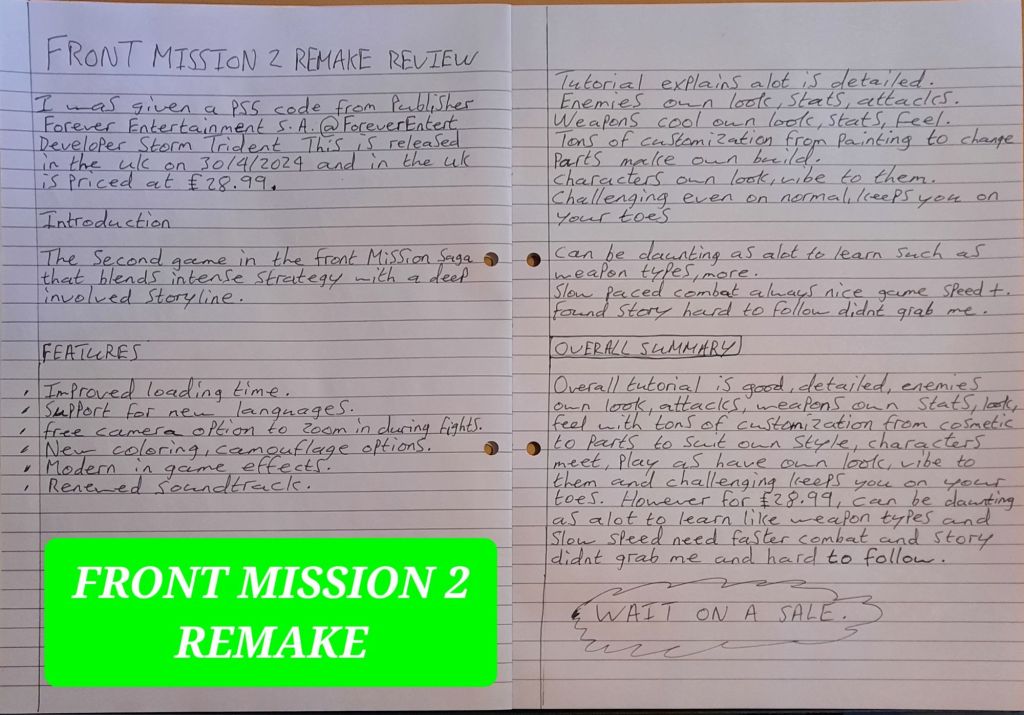 FRONT MISSION 2 REMAKE REVIEW
I was given a PS5 code from Publisher
Forever Entertainment S.A. @ForeverEntert
Developer Storm Trident This is released
in the uk on 30/4/2024 and in the uk
is priced at £28.99.
Introduction
The Second game in the front Mission Saga
that blends intense strategy with a deep
involved storyline.
FEATURES
Improved loading time.
Support for new languages.
free camera option to zoom in during fights.
New coloring, camouflage options.
Modern in game effects.
Renewed soundtrack.
FRONT MISSION 2
REMAKE
Tutorial explains alot is detailed.
Enemies own look, stats, attacks.
Weapons cool own look, stats, feel.
Tons of customization from painting to change
parts make own build.
characters own look, vibe to them.
Challenging even on normal, keeps you on
your toes
Can be daunting as alot to learn such as
weapon types, more.
Slow paced combat always nice game speed +.
found story hard to follow didnt grab me.
OVERALL SUMMARY
Overall tutorial is good, detailed, enemies
own look, attacks, weapons own stats, look,
feel with tons of customization from cosmetic
to parts to suit own style, characters
meet, play as have own look, vibe to
them and challenging keeps you on your
toes. However for £28.99, can be daunting
as alot to learn like weapon types and
slow speed need faster combat and story
didnt grab me and hard to follow.
WAIT ON A SALE.